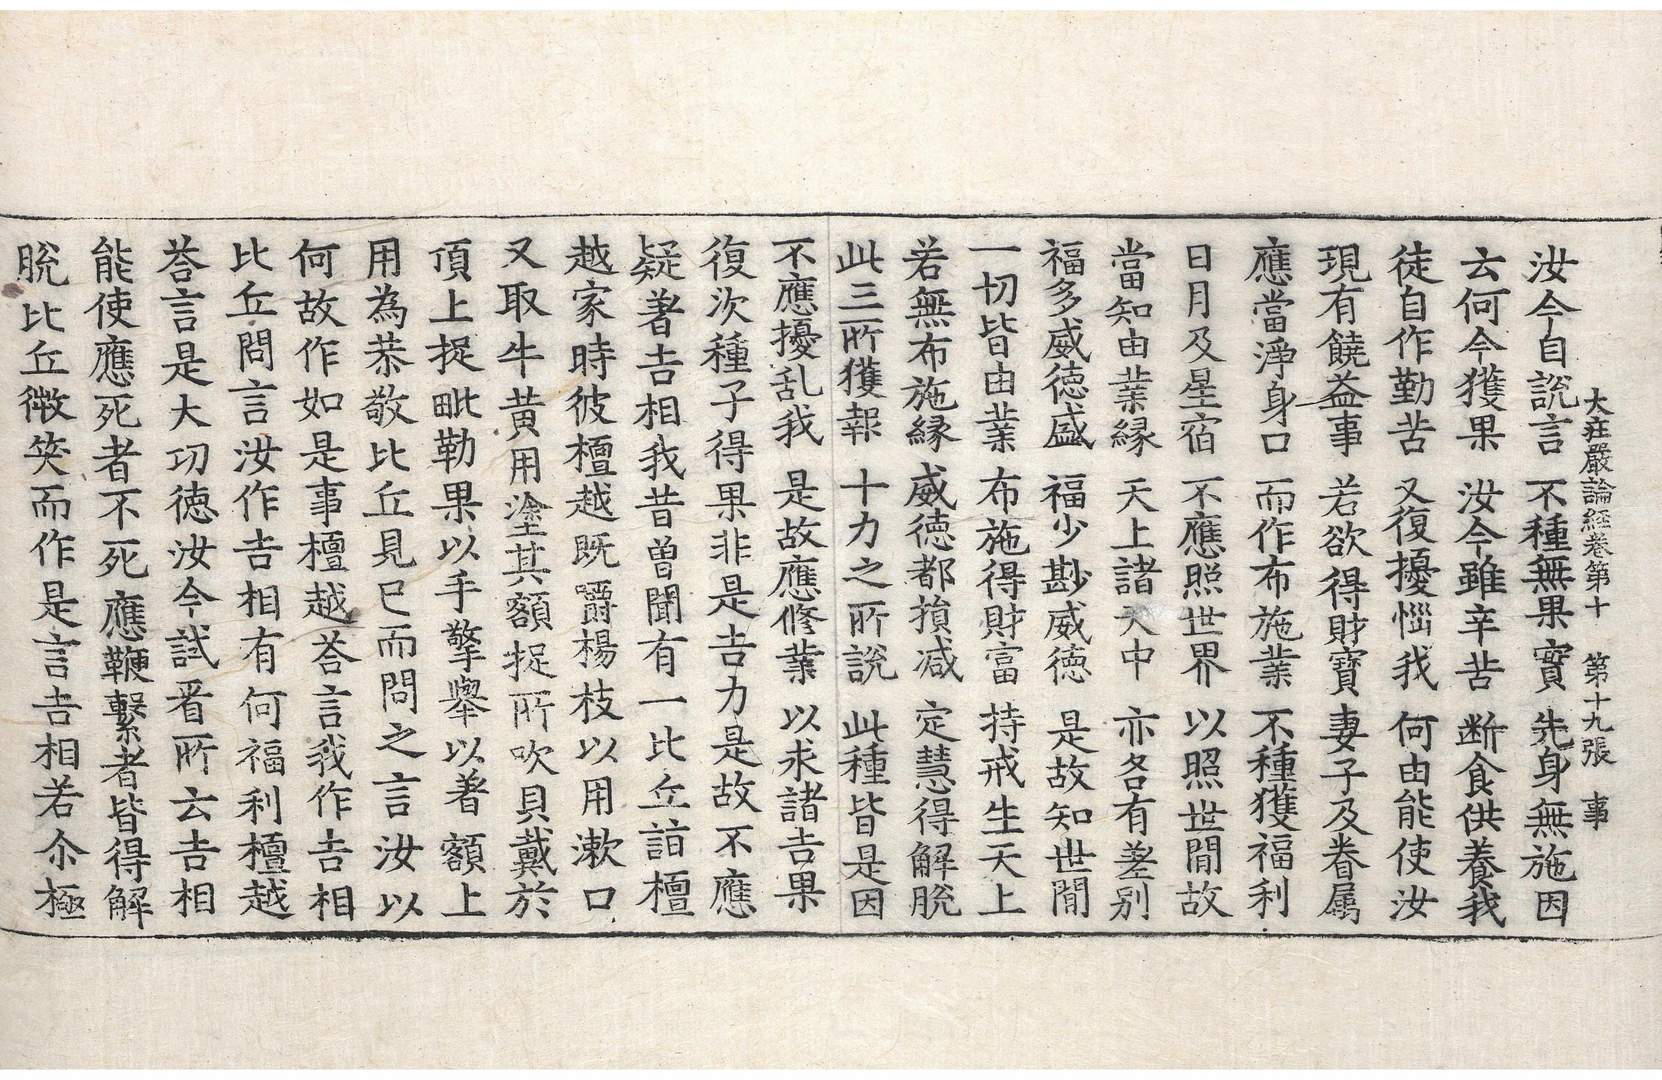 大莊嚴論経卷第十　第十九張　事
汝今自說言　不種無果實　先身無施因
云何今獲果　汝今雖辛苦　断食供養我
徒自作勤苦　又復擾惱我　何由能使汝
現有饒益事　若欲得財寶　妻子及眷属
應當淨身口　而作布施業　不種獲福利
日月及星宿　不應照世界　以照世間故
當知由業緣　天上諸天中　亦各有差别
福多威徳盛　福少尠威徳　是故知世間
一切皆由業　布施得財富　持戒生天上
若無布施縁　威徳都損减　定慧得解脫
此三所獲報　十力之所說　此種皆是因
不應擾乱我　是故應修業　以求諸吉果
復次種子得果非是吉力是故不應
疑著吉相我昔曾聞有一比丘詣檀
越家時彼檀越既嚼楊枝以用漱口
又取牛黄用塗其額捉所吹貝戴於
頂上捉毗勒果以手擎舉以著額上
用為恭敬比丘見已而問之言汝以
何故作如是事檀越荅言我作吉相
比丘問言汝作吉相有何福利檀越
荅言是大功徳汝今試看所云吉相
能使應死者不死應鞭繫者皆得解
脫比丘微笑而作是言吉相若尒極